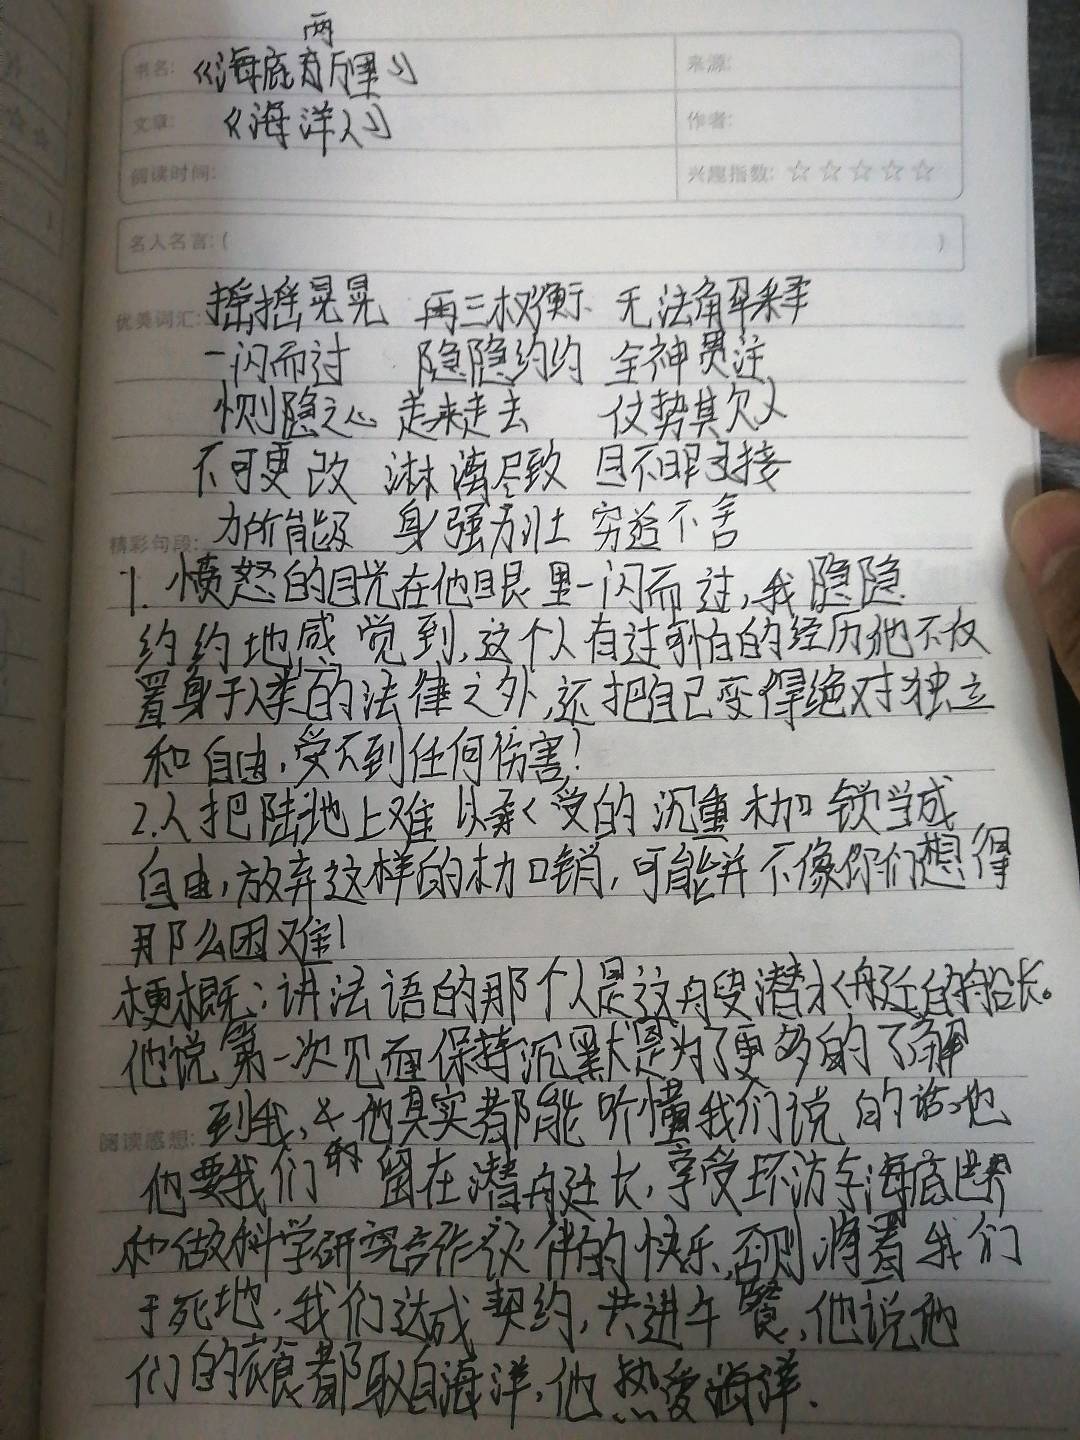 两
书名: 《海底万里》
来源:
文章: 《海洋人》
作者:
阅读时间:
兴趣指数: ☆☆☆☆☆
名人名言: ( )
优美词汇: 摇摇晃晃 再三权衡 无法解释
一闪而过 隐隐约约 全神贯注
恻隐之心 走来走去 仗势其欠人
不可更改 淋漓尽致 目不暇接
力所能及 身强力壮 穷追不舍
精彩句段:
1. 愤怒的目光在他眼里一闪而过,我隐隐
约约地感觉到,这个人有过可怕的经历他不仅
置身于人类的法律之外,还把自己变得绝对独立
和自由,受不到任何伤害!
2.人把陆地上难以承受的沉重枷锁当成
自由,放弃这样的枷销,可能并不像你们想得
那么困难!
梗概:讲法语的那个人是这艘潜水艇的船长。
他说第一次见面保持沉默是为了更多的了解
到我, 他其实都能听懂我们说的话。他
阅读感想:
他要我们 留在潜舟廷长,享受环游与海底世界
和做科学研究合作伙伴的快乐,否则将置我们
于死地,我们达成契约,共进午餐,他说他
们的衣食都取自海洋,他热爱海洋.